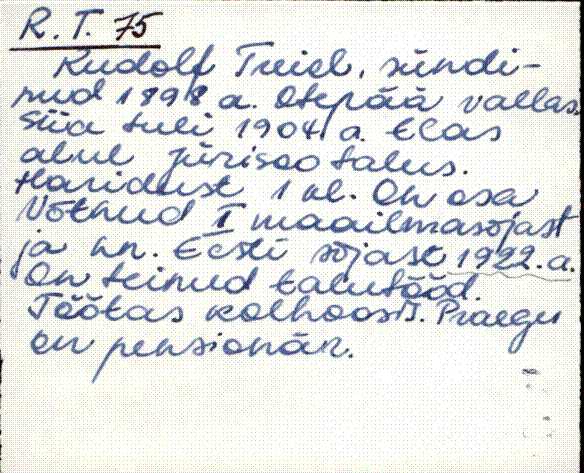 R. T. 75
Rudolf Treiel, sündi-
nud 1898 a. Otepää vallas.
Siia tuli 1904 a. Elas
alul Jürisoo talus.
Haridust 1 kl. On osa
võtnud I maailmasõjast
ja nn. Eesti sõjast 1922. a.
On teinud talutööd.
Töötas kolhoosis. Praegu
on pensionär.